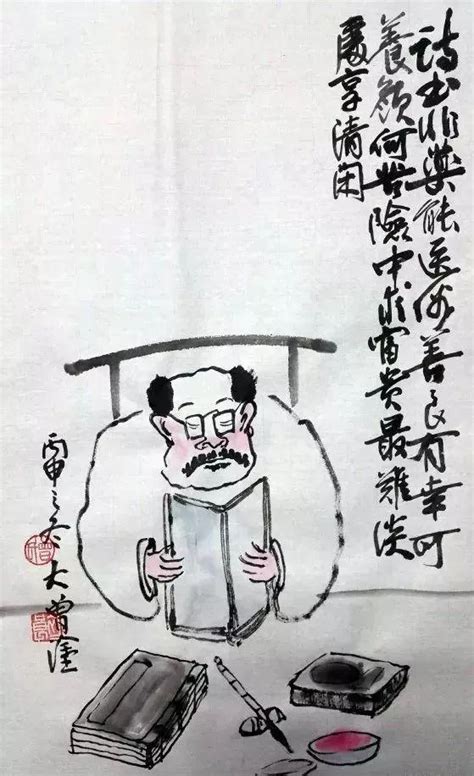 诗书非药能医俗善良有幸可
養颜何苦險中求富贵最難淡
處享清闲
丙申之冬
大曾塗